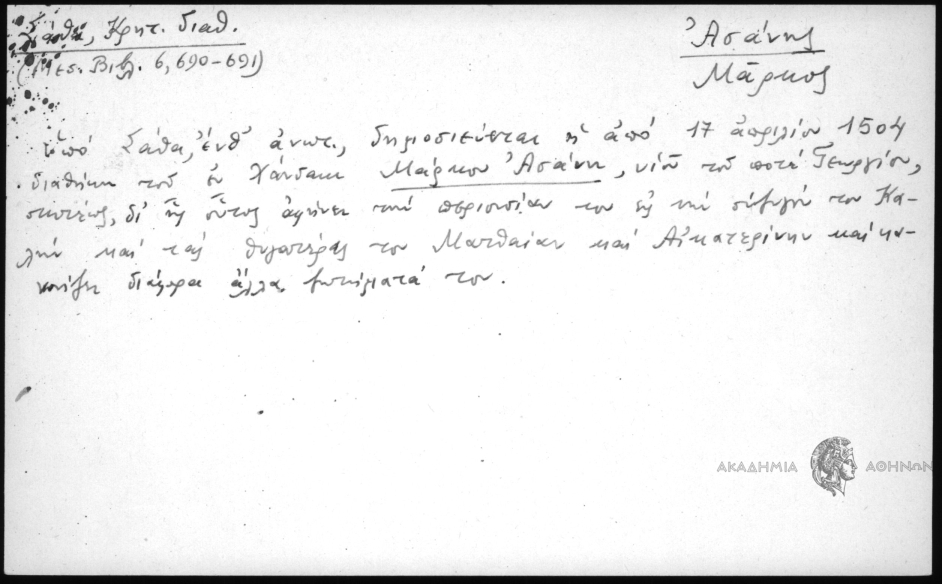 Σάθα, Κρητ. διαθ.
(Μεσ. Βιβλ. 6, 690-691)
Ἀσάνης
Μᾶρκος
Ὑπό Σάθα, ἔνθ' ἀνωτ., δημοσιεύεται ἡ ἀπό 17 ἀπριλίου 1504
διαθήκη τοῦ ἐν Χάνδακι Μάρκου Ἀσάνη, υἱοῦ τοῦ ποτέ Γεωργίου,
δι' ἧς οὗτος ἀφήνει τήν περιουσίαν του εἰς τήν σύζυγό του Κα-
λήν καί τάς θυγατέρας του Ματθαίαν καί Αἰκατερίνην καί κα-
νονίζει διάφορα ἄλλα ζητήματά του.
ΑΚΑΔΗΜΙΑ ΑΘΗΝΩΝ